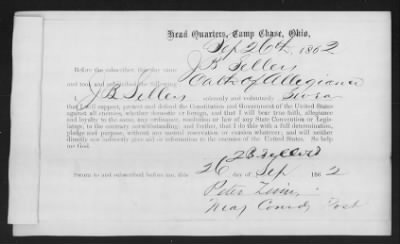 Head Quarters, Camp Chase, Ohio,
Sep 26th, 1862
Before the subscriber, this day came J B Sellers
and took and subscribed the following Oath of Allegiance
I, J B Sellers solemnly and voluntarily Swear
that I will support, protect and defend the Constitution and Government of the United States
against all enemies, whether domestic or foreign, and that I will bear true faith, allegiance
and loyalty to the same, any ordinance, resolution or law of any State Convention or Legis-
lature, to the contrary notwithstanding; and further, that I do this with a full determination,
pledge and purpose, without any mental reservation or evasion whatever; and will neither
directly or indirectly give aid or information to the enemies of the United States. So help
me God.
Sworn to and subscribed before me, this 26 day of Sep 1862
Peter Zinn
Maj Comdg Post